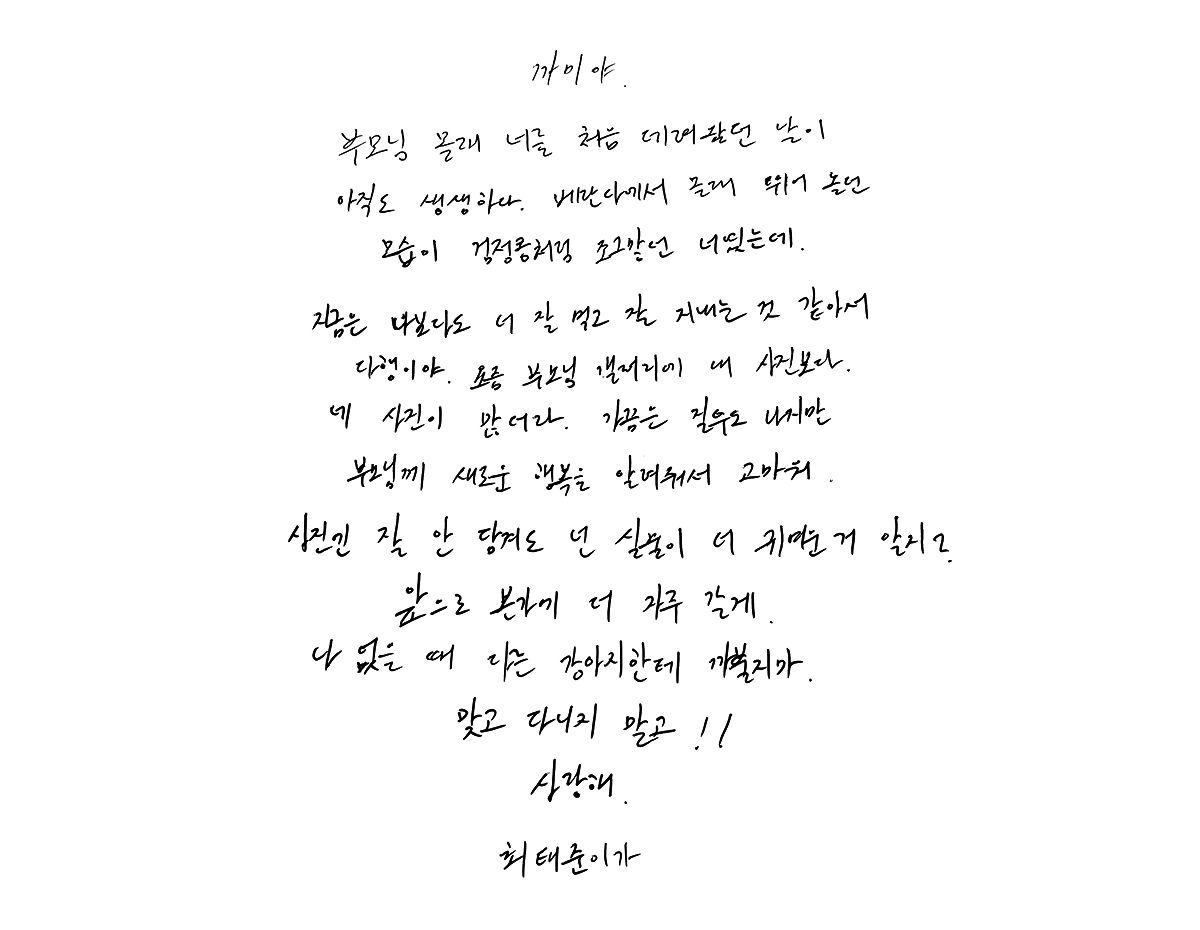 까미야.
부모님 몰래 너를 처음 데려왔던 날이
아직도 생생하다. 베란다에서 몰래 뛰어 놀던
모습이 검정콩처럼 조그맣던 너였는데.
지금은 나보다도 더 잘 먹고 잘 지내는 것 같아서
다행이야. 요즘 부모님 갤러리에 내 사진보다.
네 사진이 많더라. 가끔은 질투도 나지만
부모님께 새로운 행복을 알려줘서 고마워.
사진엔 잘 안 담겨도 넌 실물이 더 귀여운 거 알지?
앞으로 본가에 더 자주 갈게.
나 없을 때 다른 강아지한테 까불지마.
맞고 다니지 말고!!
사랑해.
최태준이가